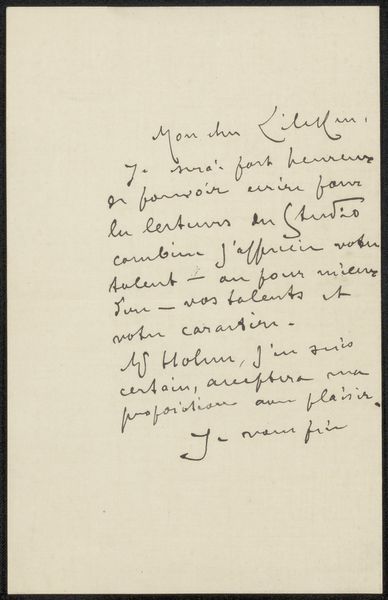 Mon cher Zilcken,
Je serai fort heureux
de pouvoir écrire pour
les lecteurs du Studio
combien j'apprécie votre
talent — ou pour mieux
dire — vos talents et
votre caractère.
Mr Holme, j'en suis
certain, acceptera ma
proposition avec plaisir.
Je vous prie